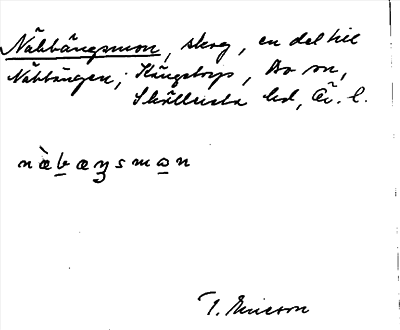 Näbbängsmon, skog, en del till
Näbbängen; Kägstorp, Bo sn,
Skyllersta hd, Ör. l.
nàb̲æŋsmɷ̲n
T. Ericson